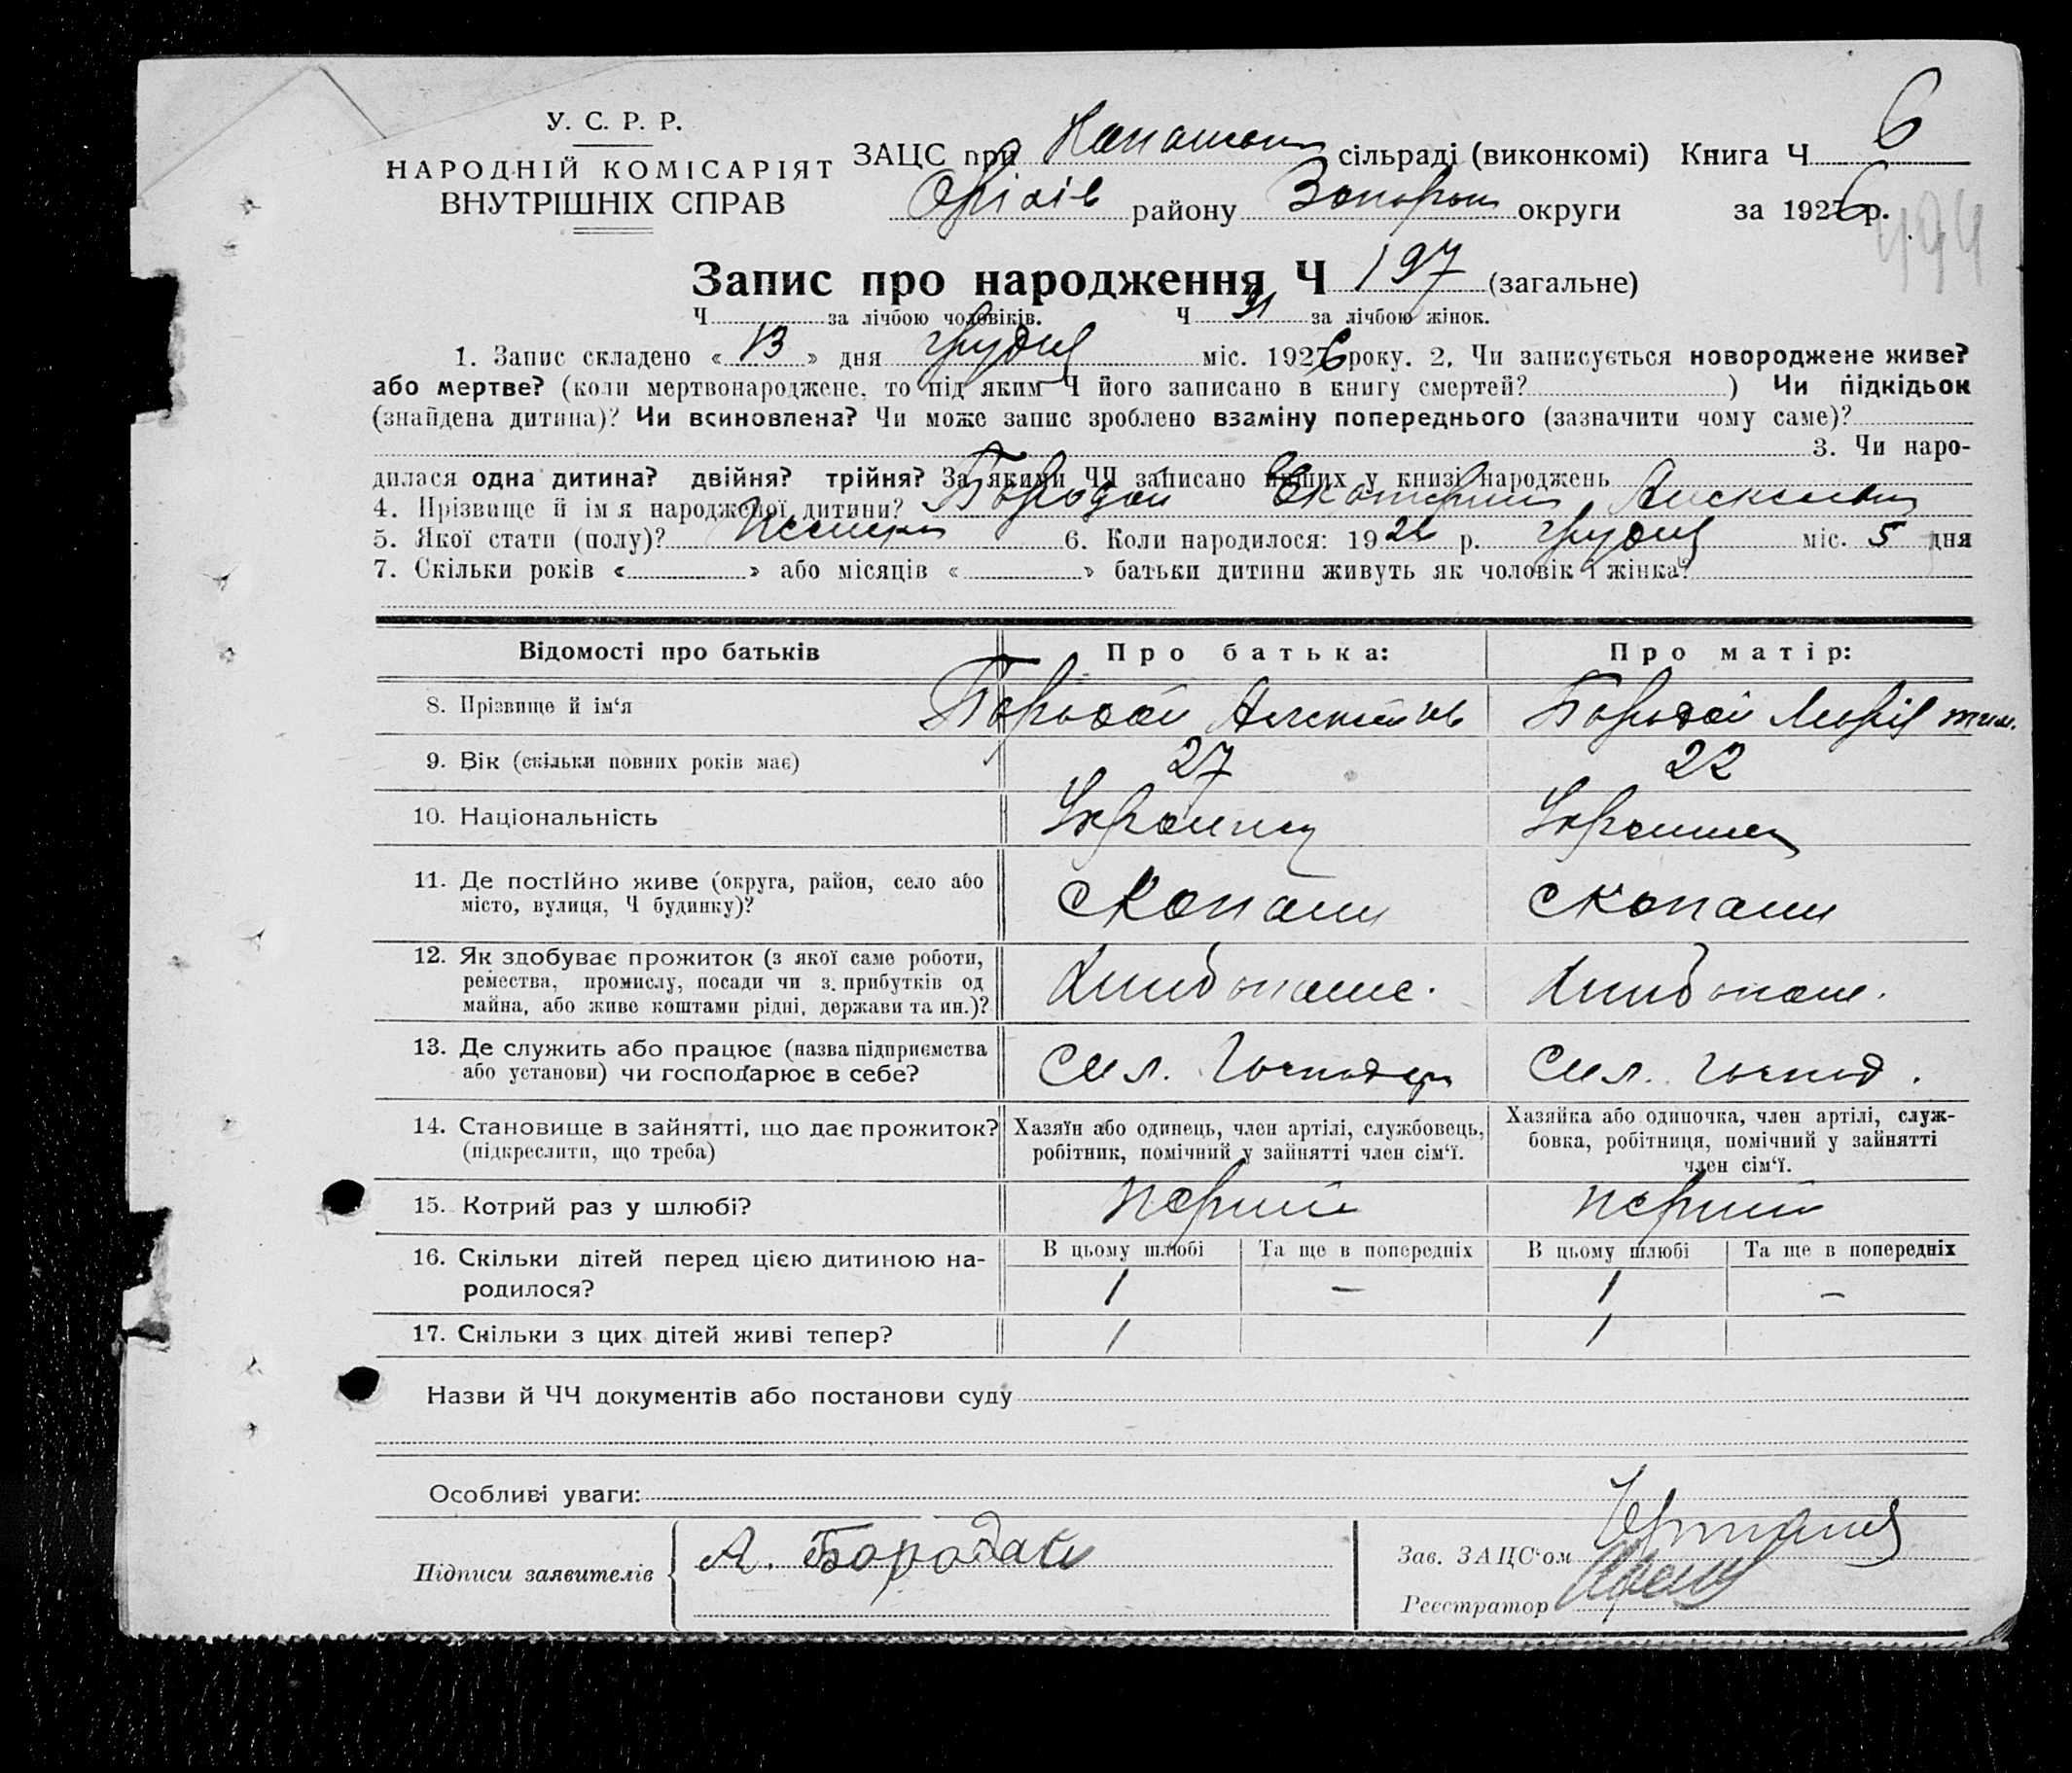 У. С. Р. Р.
НАРОДНІЙ КОМІСАРІЯТ
ВНУТРІШНІХ СПРАВ
ЗАЦС при Копанськ сільраді (виконкомі) Книга Ч 6
Оріхів району Запорож округи за 1926 р.
494
Запис про народження Ч 197 (загальне)
Ч за лічбою чоловіків. Ч 91 за лічбою жінок.
1. Запис складено « 13 » дня грудня міс. 1926 року. 2. Чи записується новороджене живе?
або мертве? (коли мертвонароджене, то під яким Ч його записано в книгу смертей? ) Чи підкідьок
(знайдена дитина)? Чи всиновлена? Чи може запис зроблено взаміну попереднього (зазначити чому саме)?
3. Чи наро-
дилася одна дитина? двійня? трійня? За якими ЧЧ записано инших у книзі народжень
4. Прізвище й ім'я народженої дитини? Бородай Екатерина
5. Якої стати (полу)? 6. Коли народилося: 1926 р. грудня міс. 5 дня
7. Скільки років « » або місяців « » батьки дитини живуть як чоловік і жінка?
Відомості про батьків Про батька: Про матір:
8. Прізвище й ім'я Бородай Бородай Марія тим.
9. Вік (скільки повних років має) 27 22
10. Національність Украинец
11. Де постійно живе (округа, район, село або
місто, вулиця, Ч будинку)? с Копани с Копани
12. Як здобуває прожиток (з якої саме роботи,
ремества, промислу, посади чи з прибутків од
майна, або живе коштами рідні, держави та ин.)?
13. Де служить або працює (назва підприємства
або установи) чи господарює в себе? Сил. Господар Сил. господ.
14. Становище в зайнятті, що дає прожиток?
(підкреслити, що треба)
Хазяїн або одинець, член артілі, службовець,
робітник, помічний у зайнятті член сім'ї.
Хазяйка або одиночка, член артілі, служ-
бовка, робітниця, помічний у зайнятті
член сім'ї.
15. Котрий раз у шлюбі? перший перший
16. Скільки дітей перед цією дитиною на-
родилося?
В цьому шлюбі Та ще в попередніх В цьому шлюбі Та ще в попередніх
1 – 1 –
17. Скільки з цих дітей живі тепер? 1 1
Назви й ЧЧ документів або постанови суду
Особливі уваги:
Підписи заявителів А. Бородай
Зав. ЗАЦС'ом
Реєстратор